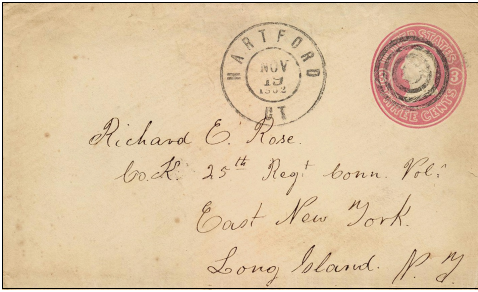 HARTFORD
NOV
19
1862
CT
UNITED STATES
3 3
THREE CENTS
Richard E. Rose.
Co. K. 25th Regt Conn. Vol.
East New York.
Long Island. N. Y